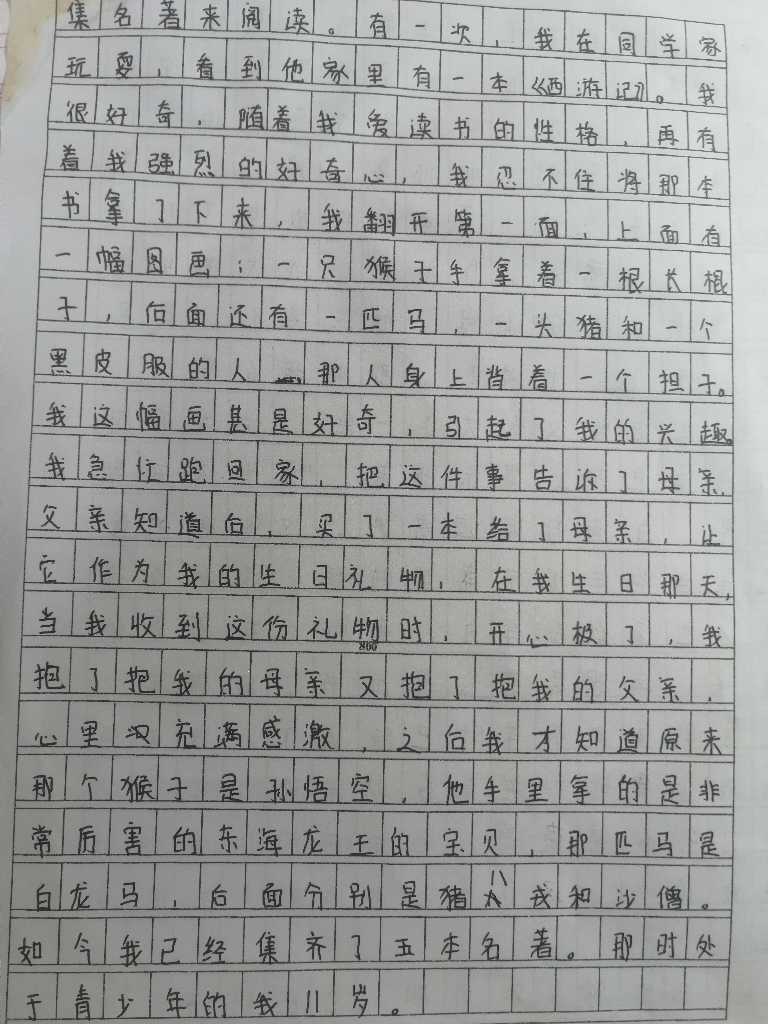 集名著来阅读。有一次，我在同学家
玩耍，看到他家里有一本《西游记》。我
很好奇，随着我爱读书的性格，再有
着我强烈的好奇心，我忍不住将那本
书拿了下来，我翻开第一面，上面有
一幅图画；一只猴子手拿着一根长棍
子，后面还有一匹马，一头猪和一个
黑皮服的人 那人身上背着一个担子。
我这幅画甚是好奇，引起了我的兴趣。
我急忙跑回家，把这件事告诉了母亲，
父亲知道后，买了一本给了母亲，让
它作为我的生日礼物，在我生日那天，
当我收到这份礼物时，开心极了，我
800
抱了抱我的母亲又抱了抱我的父亲，
心里充满感激，之后我才知道原来
那个猴子是孙悟空，他手里拿的是非
常厉害的东海龙王的宝贝，那匹马是
白龙马，后面分别是猪八戒和沙僧。
如今我已经集齐了五本名著。那时处
于青少年的我11岁。